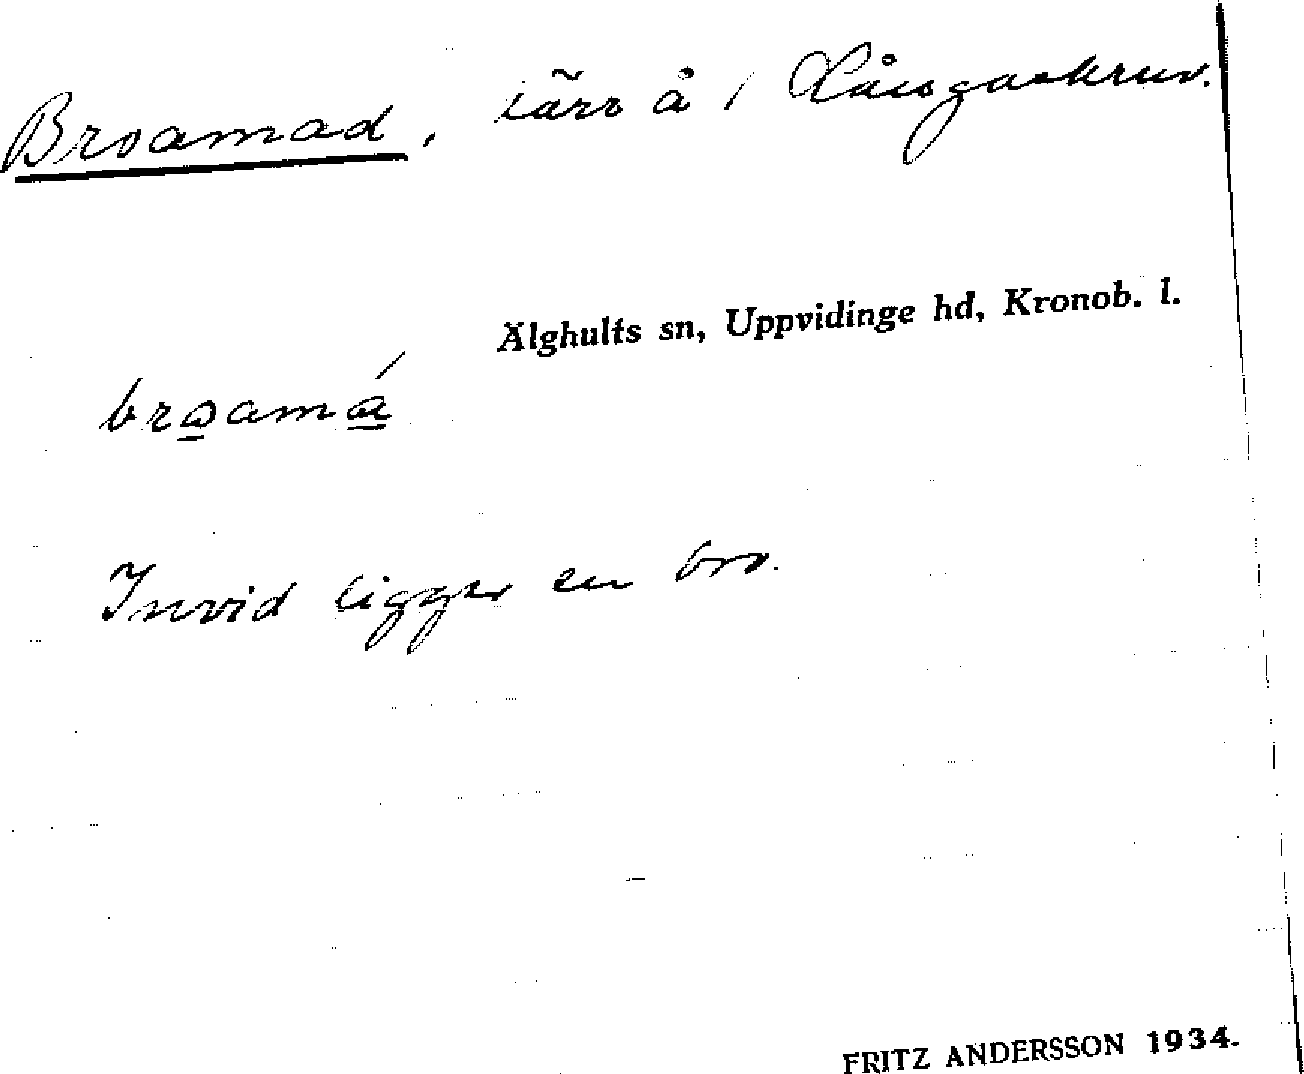 Broamad, kärr å 1 Långaskruv.
Älghults sn, Uppvidinge hd, Kronob. l.
broamá
Invid ligger en bro.
FRITZ ANDERSSON 1934.